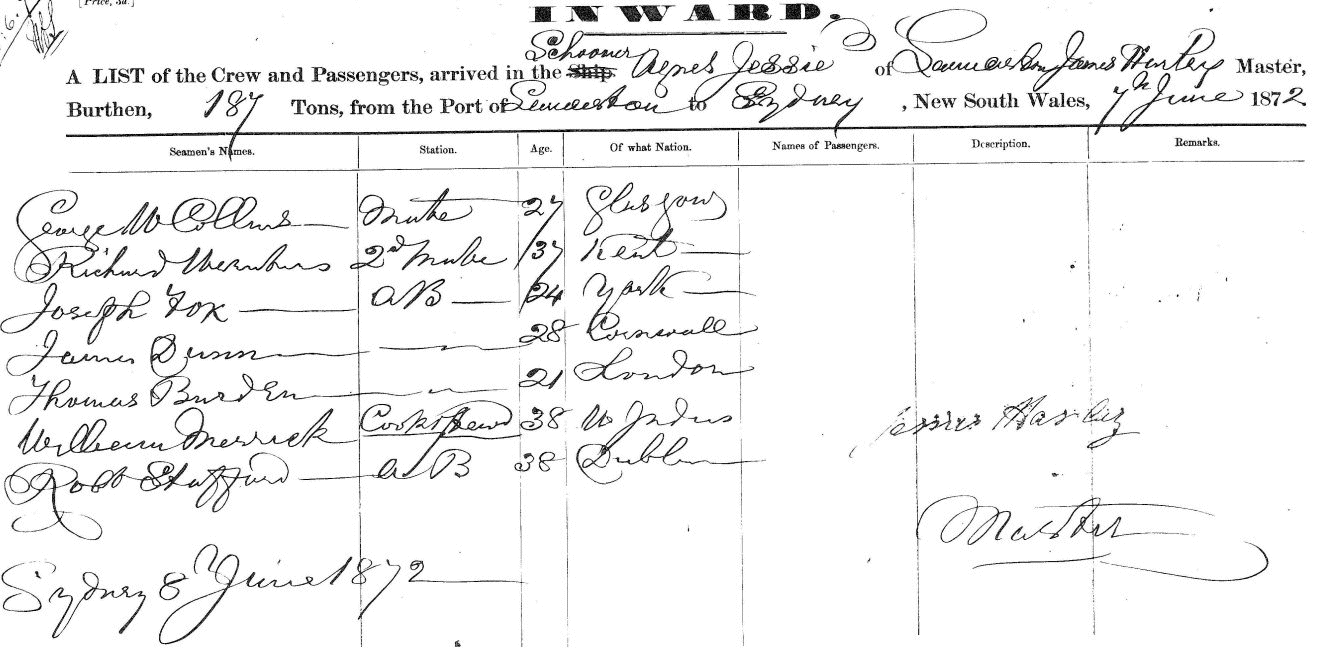 [Price, 3d.]
INWARD.
A LIST of the Crew and Passengers, arrived in the Ship Schooner Agnes Jessie of Launceston James Master,
Burthen, 187 Tons, from the Port of Launceston to Sydney, New South Wales, 7th June 1872
Seamen's Names. Station. Age. Of what Nation. Names of Passengers. Description. Remarks.
George McCollins Mate 27 Glasgow
Richard 2nd Mate 37 Kent
Joseph Fox AB 24 York
James Dunn 28 Cornwall
Thomas Burden 21 London
William Merrick Cook & Steward 38 W Indies
Robt Stafford AB 38 Dublin
Master
Sydney 8th June 1872